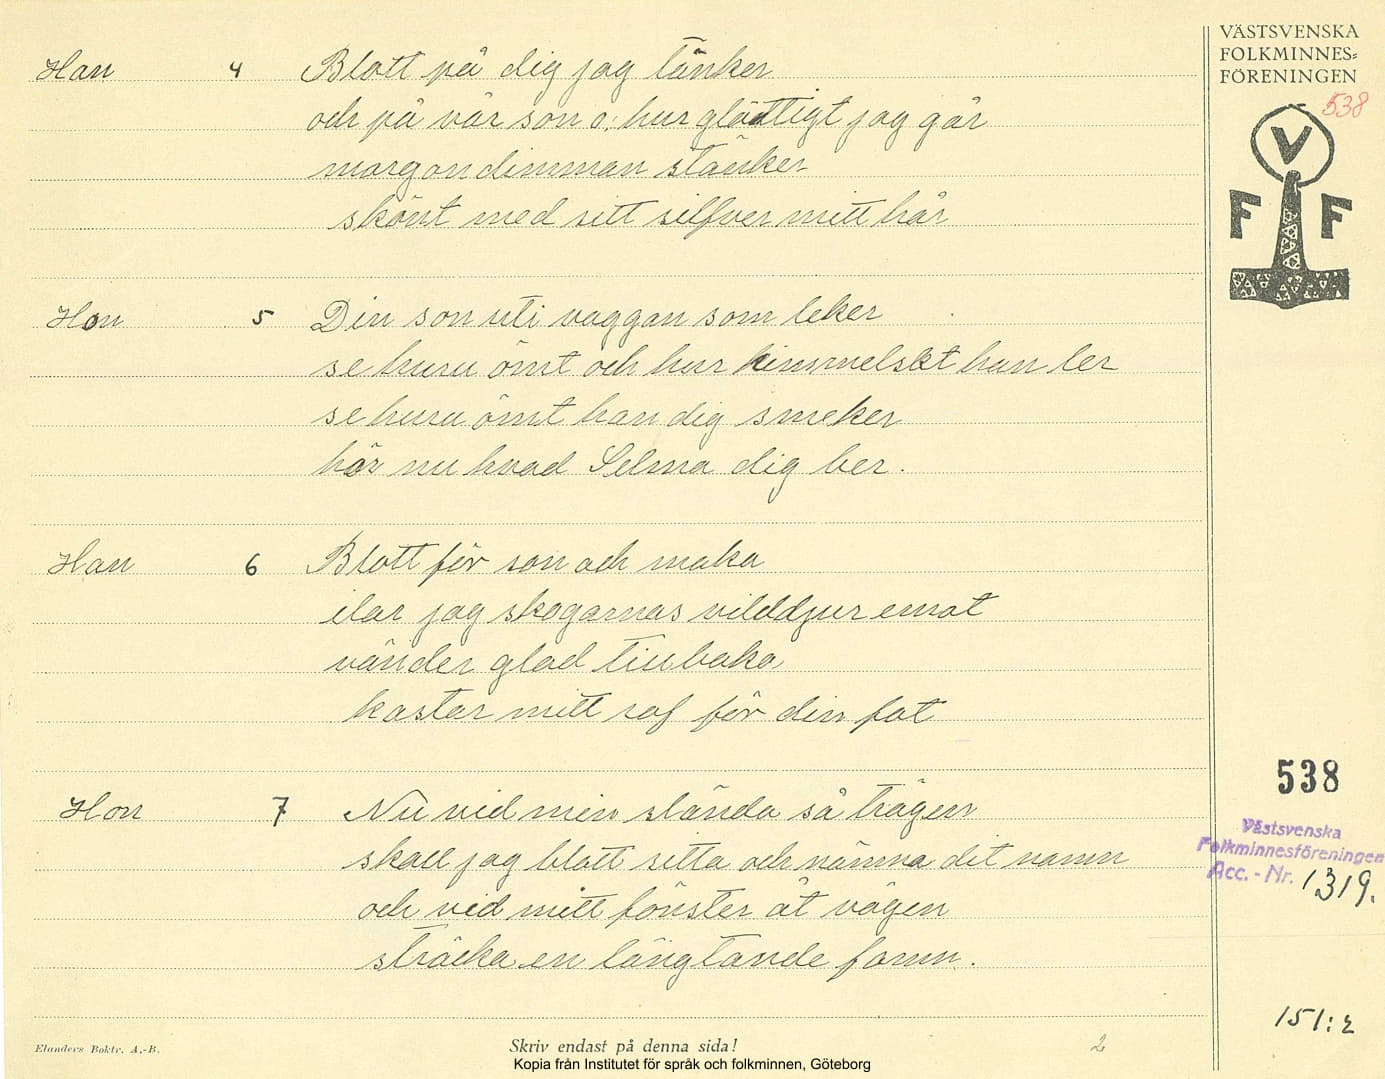 VÄSTSVENSKA
FOLKMINNES=
FÖRENINGEN
538
V
F F
Han 4 Blott på dig jag tänker
och på vår son o, hur gladtligt jag går
morgondimman stänker
skönt med sitt silfver mitt hår
Hon 5 Din son uti vaggan som leker
se huru ömt och hur himmelskt han ler
se huru ömt han dig smeker
hör nu hvad Selma dig ber.
Han 6 Blott för son och maka
ilar jag skogarnas vilddjur emot
vänder glad tillbaka
kastar mitt rof för din fot
Hon 7 Nu vid min slända så trägen
skall jag blott sitta och nämna dit namn
och vid mitt fönster åt vägen
sträcka en längtande famn.
538
Västsvenska
Folkminnesföreningen
Acc. - Nr. 1319.
151:2
Elanders Boktr. A.-B.
Skriv endast på denna sida!
2
Kopia från Institutet för språk och folkminnen, Göteborg